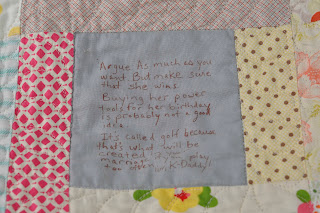 Argue As much as you
want. But make sure
that she wins.
Buying her power
tools for her birthday
Is probably not a good
idea.
It's called golf because
that's what will be
created in your
marriage play
too often K. Duddy!!